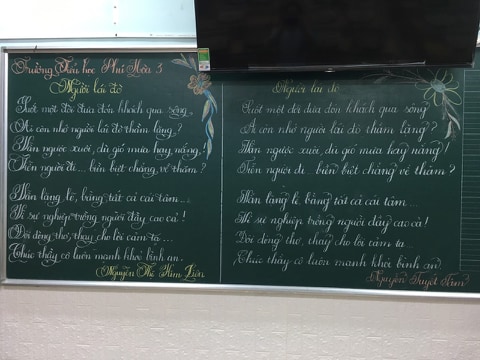 Trường Tiểu học Phú Hòa 3
Người lái đò
Suốt một đời đưa đón khách qua sông,
Ai còn nhớ người lái đò thầm lặng?
Dẫn người xuôi, dù gió mưa hay nắng,
Tiễn người đi... biền biệt chẳng về thăm?
lặng lẽ, bằng tất cả cái tâm...
Vì sự nghiệp trồng người đầy cao cả!
Đôi dòng thơ, thay cho lời cảm tạ...
Chúc thầy cô luôn mạnh khỏe bình an.
Nguyễn Thị Kim Liên
Người lái đò
Suốt một đời đưa đón khách qua sông
Ai còn nhớ người lái đò thầm lặng?
người xuôi, dù gió mưa hay nắng!
Tiễn người đi... biền biệt chẳng về thăm?
lặng lẽ, bằng tất cả cái tâm...
Vì sự nghiệp trồng người đầy cao cả!
Đôi dòng thơ, thay cho lời cảm tạ...
Chúc thầy cô luôn mạnh khỏe bình an.
Nguyễn Tuyết